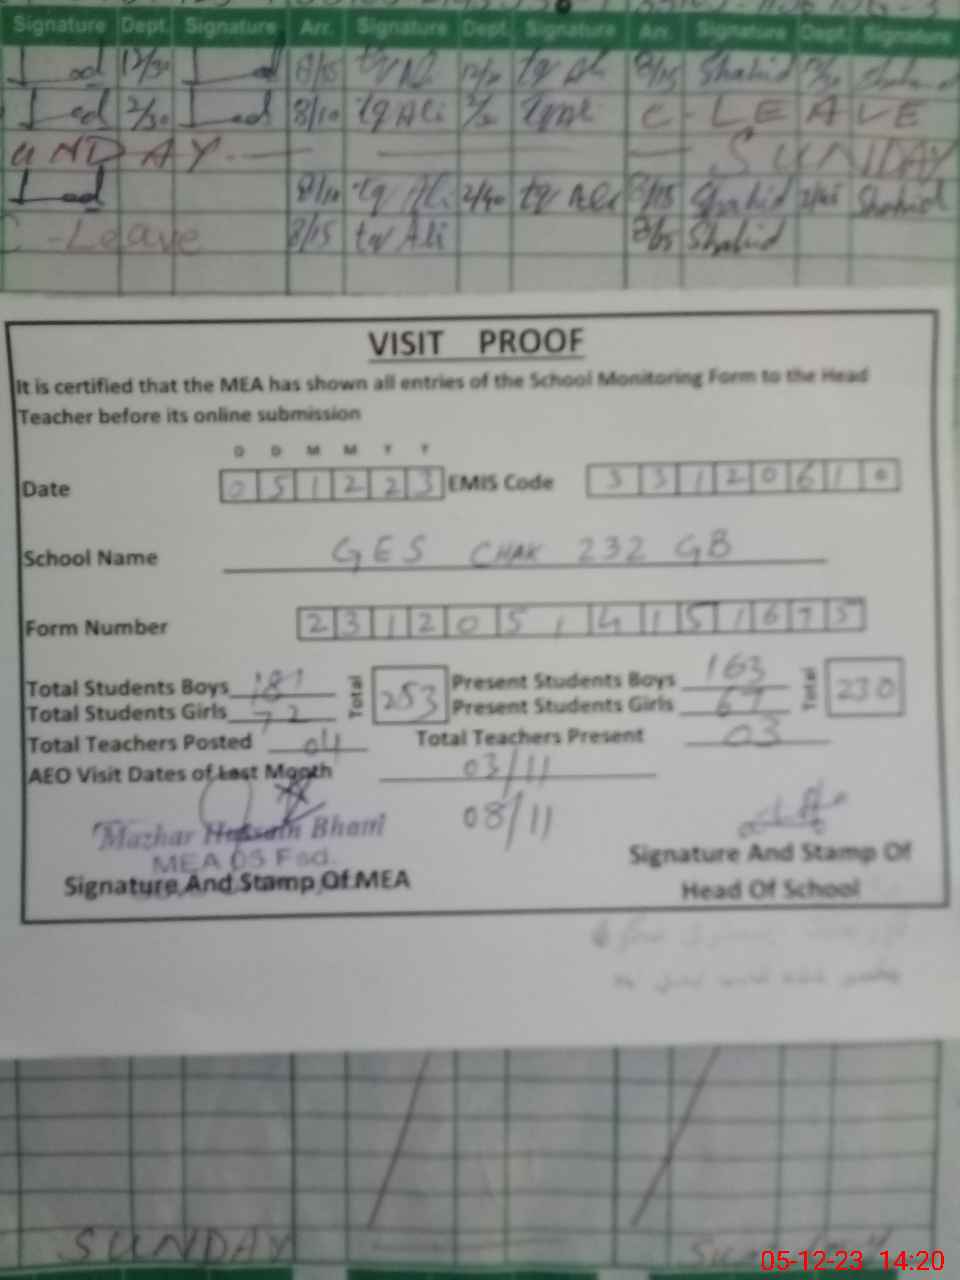 Signature Dept. Signature Arr. Signature Dept. Signature Arr. Signature Dept. Signature
12/30 8/15 tq Ali tq Ali 8/15 Shahid
2/30 8/10 tq Ali tq Ali C-LEAVE
UNDAY SUNDAY
8/10 tq Ali 2/40 tq Ali 8/15 Shahid 2/45 Shahid
C-Leave 8/15 tq Ali 8/15 Shahid
VISIT PROOF
It is certified that the MEA has shown all entries of the School Monitoring Form to the Head
Teacher before its online submission
D D M M Y Y
Date 051223 EMIS Code 33120610
School Name GES CHAK 232 GB
Form Number 231205,4151675
Total Students Boys 181 Total 253 Present Students Boys 163 Total 230
Total Students Girls 72 Present Students Girls 67
Total Teachers Posted 04 Total Teachers Present 03
AEO Visit Dates of Last Month 03/11
08/11
Mazhar Hussain Bhatti
MEA 05 Fsd.
Signature And Stamp Of MEA
Signature And Stamp Of
Head Of School
SUNDAY Sunday
05-12-23 14:20